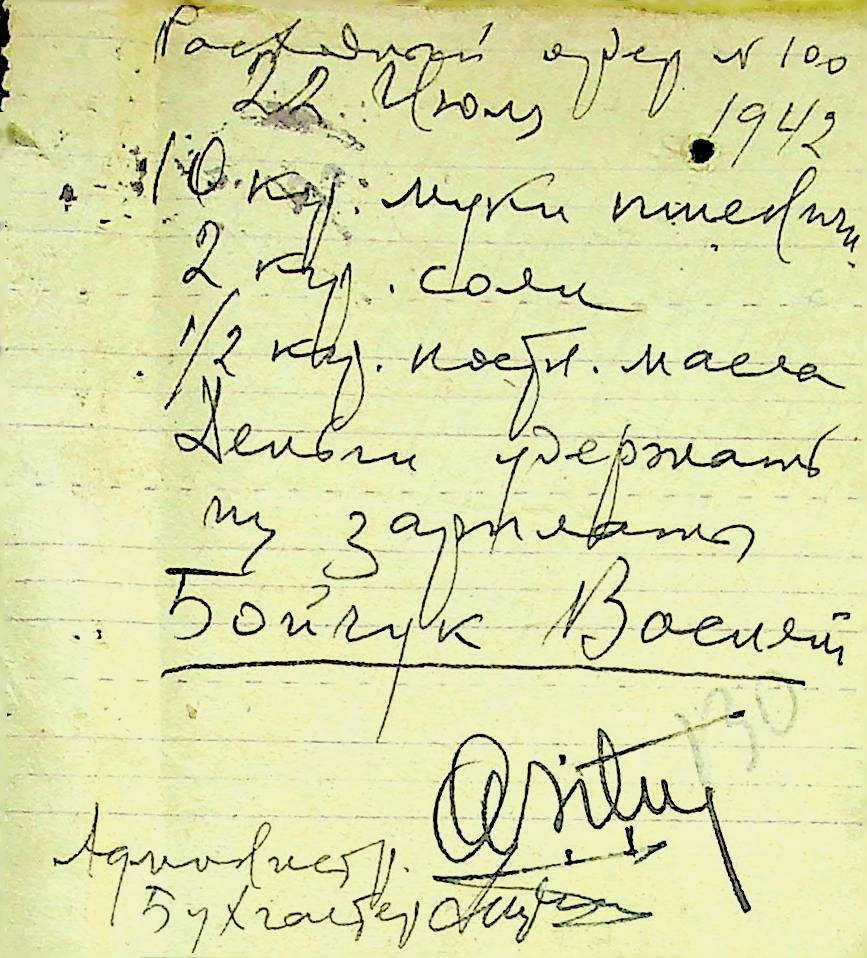 Расходный ордер N 100
22 Июля 1942
10 кгр. муки пшенични
2 кгр. соли
1/2 кгр. постн. масла
Деньги удержать
из зарплаты
Бойчук Василий
130
Администр.
Бухгалтер